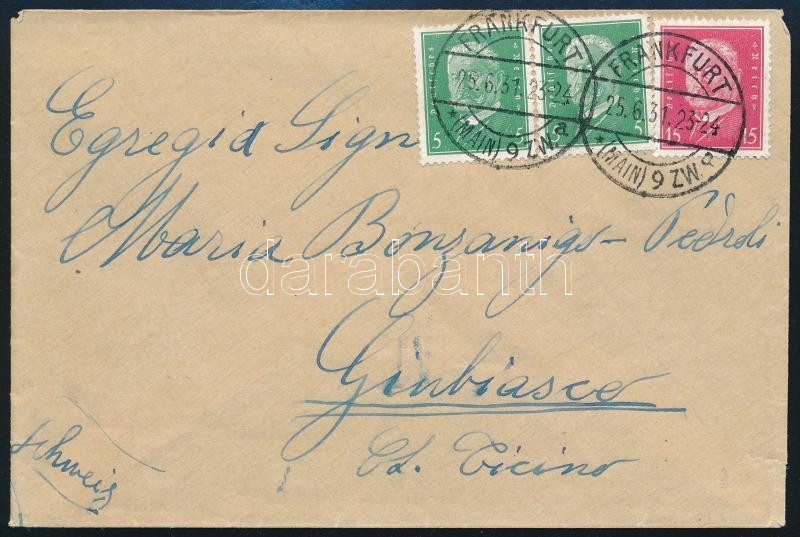 FRANKFURT
25.6.31. 23-24
* (MAIN) 9 ZW. a
FRANKFURT
25.6.31. 23-24
* (MAIN) 9 ZW. a
Deutsches Reich
5 5
5 5
15 15
Egregia Sign
Maria Bonzanigo - Pedroli
Giubiasco
Ct. Ticino
Schweiz
darabanth